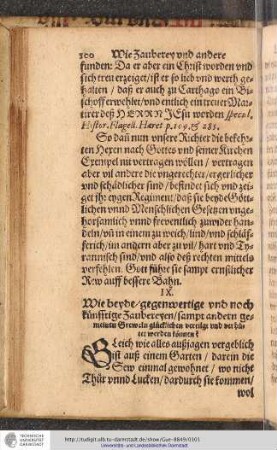 300 Wie Zauberey vnd andere
funden: Da er aber ein Christ worden vnd
sich treu erzeiget/ist er so lieb vnd werth ge-
halten / daß er auch zu Carthago ein Bi-
schoff erwehlet/vnd entlich ein treuer Mar-
tirer deß HERRN JEsu worden specul.
Histor. Flagell. Haret p. 109. & 285.
So dañ nun vnsere Richter die bekehr-
ten Hexen nach Gottes vnd seiner Kirchen
Exempel nit vertragen wöllen / vertragen
aber vil andere die vngerechter/ergerlicher
vnd schädlicher sind / befindet sich vnd zei-
get ihr eygen Regiment/daß sie beyde Gött-
lichen vnnd Menschlichen Gesetzen vnge-
horsamlich vnnd freventlich zuwider han-
deln/vñ in einem zu weich/lind/vnd schläf-
ferich/im andern aber zu vil/ hart vnd Ty-
rannisch sind/vnd also deß rechten mittels
verfehlen. Gott führe sie sampt ernstlicher
Rew auff bessere Bahn.
IX.
Wie beyde/gegenwertige vnd noch
künfftige Zaubereyen/sampt andern ge-
meinen Greweln glücklichen vertilgt vnd verhü-
tet werden können?
GLeich wie alles außjagen vergeblich
ist auß einem Garten / darein die
Sew einmal gewohnet / wo nicht
Thür vnnd Lucken/dardurch sie kommen/
wol
http://tudigit.ulb.tu-darmstadt.de/show/Gue-4849/0303
Universitäts- und Landesbibliothek Darmstadt